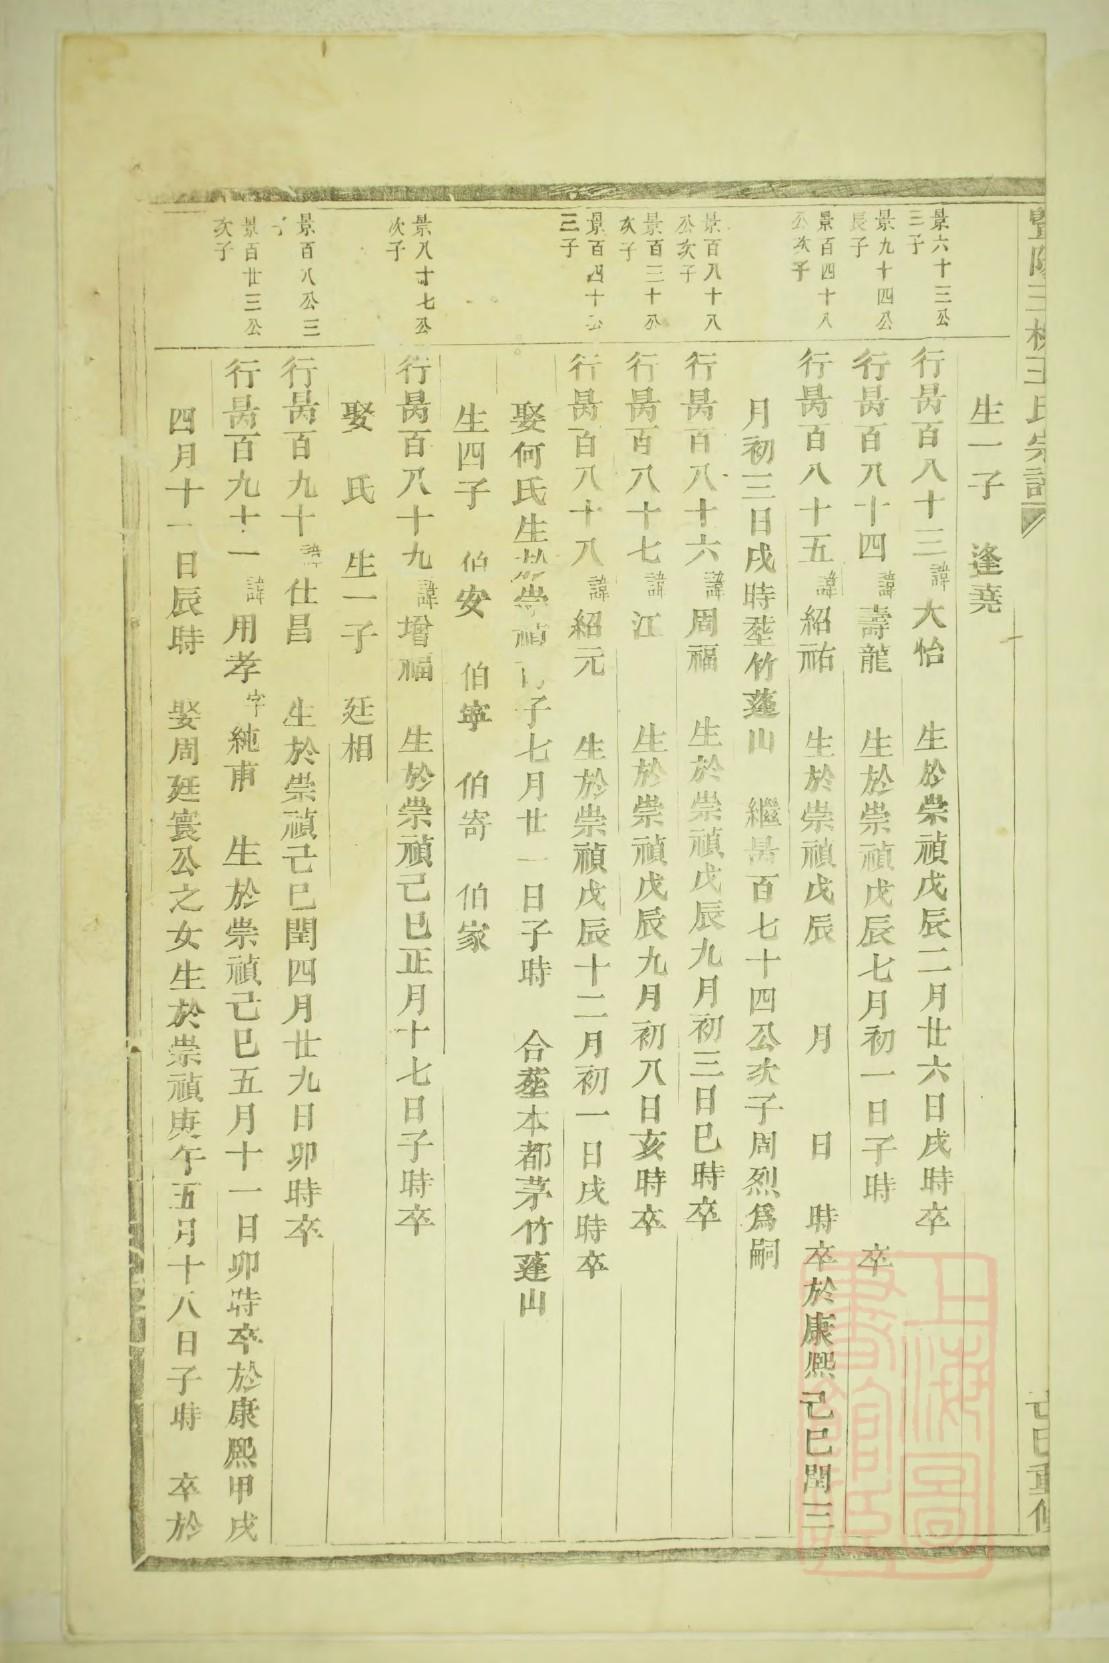 生一子 逢堯
景六十三公三子
行昺百八十三諱大怡 生於崇禎戊辰二月廿六日戌時卒
景九十四公長子
行昺百八十四諱壽龍 生於崇禎戊辰七月初一日子時 卒
景百四十八公次子
行昺百八十五諱紹祐 生於崇禎戊辰 月 日 時卒於康熙己巳閏三
月初三日戌時塟竹蓬山 繼昺百七十四公次子周烈爲嗣
景百八十八公次子
行昺百八十六諱周福 生於崇禎戊辰九月初三日巳時卒
景百三十公次子
行昺百八十七諱江 生於崇禎戊辰九月初八日亥時卒
景百四十公三子
行昺百八十八諱紹元 生於崇禎戊辰十二月初一日戌時卒
娶何氏生於崇禎 子七月廿一日子時 合塟本都茅竹蓬山
生四子 伯安 伯寧 伯寄 伯家
景八十七公次子
行昺百八十九諱增福 生於崇禎己巳正月十七日子時卒
娶 氏 生一子 廷相
景百八公三子
行昺百九十諱仕昌 生於崇禎己巳閏四月廿九日卯時卒
景百廿三公次子
行昺百九十一諱用孝字純甫 生於崇禎己巳五月十一日卯時卒於康熙甲戌
四月十一日辰時 娶周廷寰公之女生於崇禎庚午五月十八日子時 卒於
上海圖書館藏